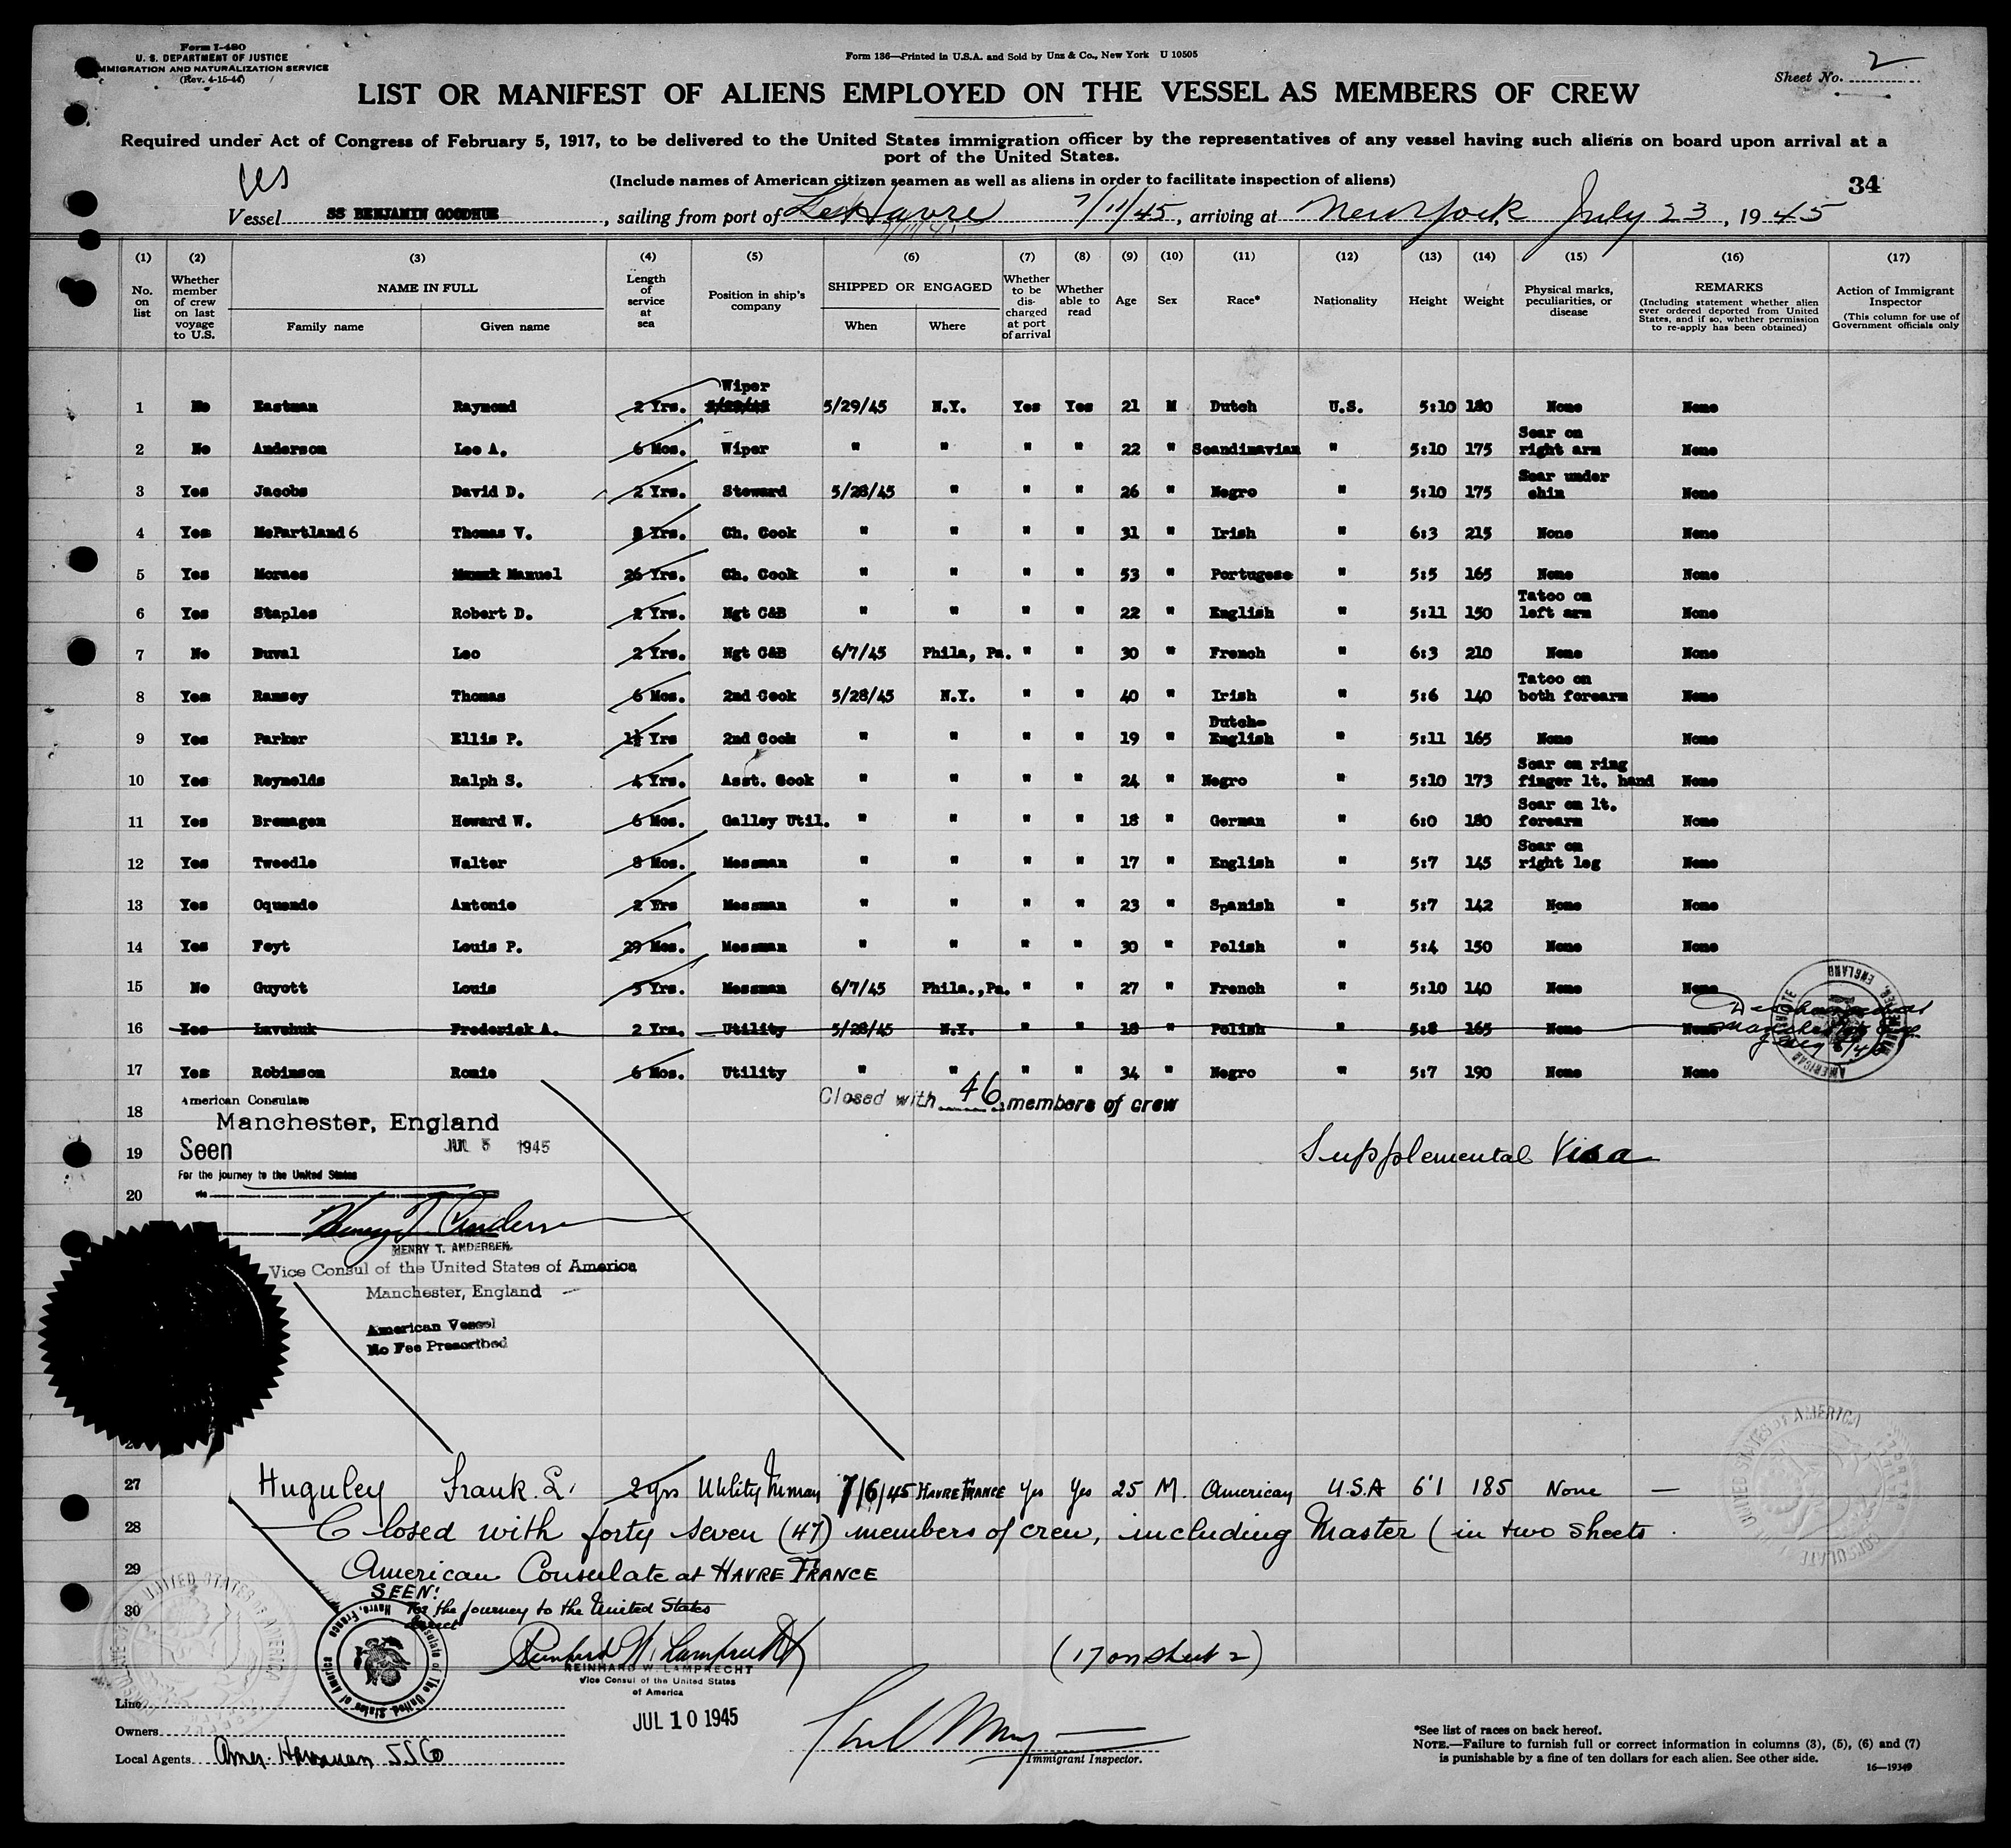 Form I-480
U. S. DEPARTMENT OF JUSTICE
IMMIGRATION AND NATURALIZATION SERVICE
(Rev. 4-15-44)
Form 136—Printed in U.S.A. and Sold by Unz & Co., New York U 10505
Sheet No. 2
LIST OR MANIFEST OF ALIENS EMPLOYED ON THE VESSEL AS MEMBERS OF CREW
Required under Act of Congress of February 5, 1917, to be delivered to the United States immigration officer by the representatives of any vessel having such aliens on board upon arrival at a
port of the United States.
(Include names of American citizen seamen as well as aliens in order to facilitate inspection of aliens)
34
Vessel SS BENJAMIN GOODHUE, sailing from port of Le Havre 7/11/45, arriving at New York, July 23, 1945
(1) (2) (3) (4) (5) (6) (7) (8) (9) (10) (11) (12) (13) (14) (15) (16) (17)
No. on list
Whether member of crew on last voyage to U.S.
NAME IN FULL
Family name Given name
Length of service at sea
Position in ship's company
SHIPPED OR ENGAGED
When Where
Whether to be discharged at port of arrival
Whether able to read
Age
Sex
Race*
Nationality
Height
Weight
Physical marks, peculiarities, or disease
REMARKS
(Including statement whether alien ever ordered deported from United States, and if so, whether permission to re-apply has been obtained)
Action of Immigrant Inspector
(This column for use of Government officials only
1 No Eastman Raymond 2 Yrs. Wiper 5/29/45 N.Y. Yes Yes 21 M Dutch U.S. 5:10 180 None None
2 No Anderson Leo A. 6 Mos. Wiper " " " " 22 " Scandinavian " 5:10 175 Scar on right arm None
3 Yes Jacobs David D. 2 Yrs. Steward 5/28/45 " " " 26 " Negro " 5:10 175 Scar under chin None
4 Yes McPartland 6 Thomas V. 8 Yrs. Ch. Cook " " " " 31 " Irish " 6:3 215 None None
5 Yes Moraes Manuel 26 Yrs. Ch. Cook " " " " 53 " Portugese " 5:5 165 None None
6 Yes Staples Robert D. 2 Yrs. Ngt C&B " " " " 22 " English " 5:11 150 Tatoo on left arm None
7 No Duval Leo 2 Yrs. Ngt C&B 6/7/45 Phila, Pa. " " 30 " French " 6:3 210 None None
8 Yes Ramsey Thomas 6 Mos. 2nd Cook 5/28/45 N.Y. " " 40 " Irish " 5:6 140 Tatoo on both forearm None
9 Yes Parker Ellis P. 1½ Yrs 2nd Cook " " " " 19 " Dutch-English " 5:11 165 None None
10 Yes Reynolds Ralph S. 4 Yrs. Asst. Cook " " " " 24 " Negro " 5:10 173 Scar on ring finger lt. hand None
11 Yes Bremagen Howard W. 6 Mos. Galley Util. " " " " 18 " German " 6:0 180 Scar on lt. forearm None
12 Yes Tweedle Walter 8 Mos. Messman " " " " 17 " English " 5:7 145 Scar on right leg None
13 Yes Oquendo Antonio 2 Yrs Messman " " " " 23 " Spanish " 5:7 142 None None
14 Yes Feyt Louis P. 29 Mos. Messman " " " " 30 " Polish " 5:4 150 None None
15 No Guyott Louis 5 Yrs. Messman 6/7/45 Phila., Pa. " " 27 " French " 5:10 140 None None
16 Yes Lavchuk Frederick A. 2 Yrs. Utility 5/28/45 N.Y. " " 18 " Polish " 5:8 165 None None
17 Yes Robinson Romie 6 Mos. Utility " " " " 34 " Negro " 5:7 190 None None
18
Closed with 46 members of crew
American Consulate
Manchester, England
19 Seen JUL 5 1945
Supplemental Visa
For the journey to the United States
20 via
HENRY T. ANDERSEN
Vice Consul of the United States of America
Manchester, England
American Vessel
No Fee Prescribed
27 Huguley Frank L. 2 yrs Utility 7/6/45 HAVRE FRANCE Yes Yes 25 M. American U.S.A 6'1 185 None —
28 Closed with forty seven (47) members of crew, including Master (in two sheets
29 American Consulate at HAVRE FRANCE
SEEN:
30 For the journey to the United States
direct
Consulate of The United States of America Havre, France
REINHARD W. LAMPRECHT
Vice Consul of the United States
of America
(17 on sheet 2)
JUL 10 1945
Line
Owners
Local Agents Amer. Hawaiian SS Co
Immigrant Inspector.
*See list of races on back hereof.
NOTE.—Failure to furnish full or correct information in columns (3), (5), (6) and (7)
is punishable by a fine of ten dollars for each alien. See other side.
16—19349